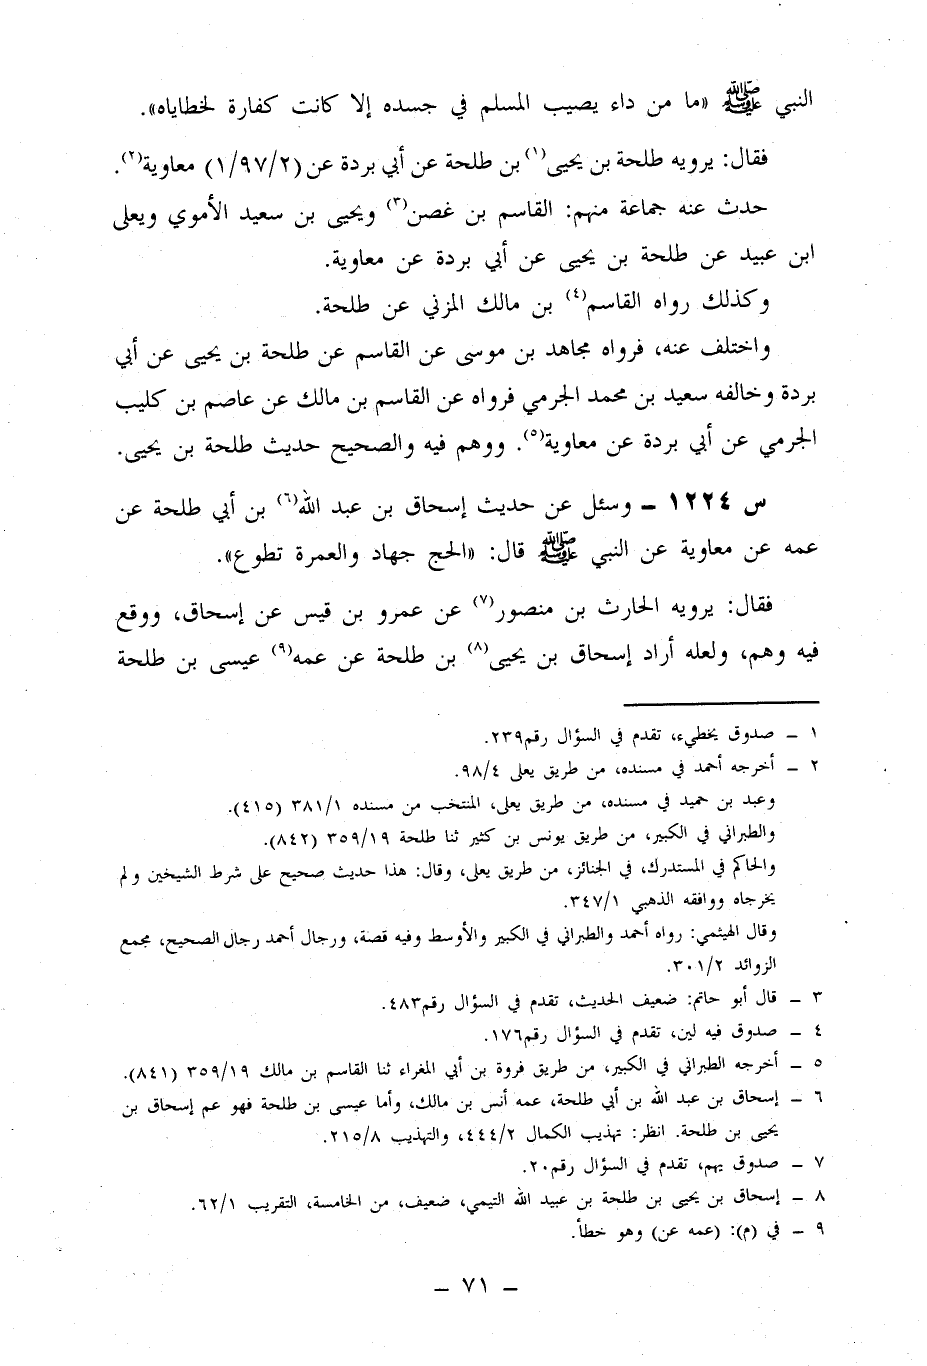 النبي ﷺ «ما من داء يصيب المسلم في جسده إلا كانت كفارة لخطاياه».
فقال: يرويه طلحة بن يحيى(١) بن طلحة عن أبي بردة عن (١/٩٧/٢) معاوية(٢).
حدث عنه جماعة منهم: القاسم بن غصن(٣) ويحيى بن سعيد الأموي ويعلى
ابن عبيد عن طلحة بن يحيى عن أبي بردة عن معاوية.
وكذلك رواه القاسم(٤) بن مالك المزني عن طلحة.
واختلف عنه، فرواه مجاهد بن موسى عن القاسم عن طلحة بن يحيى عن أبي
بردة وخالفه سعيد بن محمد الجرمي فرواه عن القاسم بن مالك عن عاصم بن كليب
الجرمي عن أبي بردة عن معاوية(٥). ووهم فيه والصحيح حديث طلحة بن يحيى.
س ١٢٢٤ – وسئل عن حديث إسحاق بن عبد الله(٦) بن أبي طلحة عن
عمه عن معاوية عن النبي ﷺ قال: «الحج جهاد والعمرة تطوع».
فقال: يرويه الحارث بن منصور(٧) عن عمرو بن قيس عن إسحاق، ووقع
فيه وهم، ولعله أراد إسحاق بن يحيى(٨) بن طلحة عن عمه(٩) عيسى بن طلحة
١ – صدوق يخطيء، تقدم في السؤال رقم٢٣٩.
٢ – أخرجه أحمد في مسنده، من طريق يعلى ٩٨/٤.
وعبد بن حميد في مسنده، من طريق يعلى، المنتخب من مسنده ٣٨١/١ (٤١٥).
والطبراني في الكبير، من طريق يونس بن كثير ثنا طلحة ٣٥٩/١٩ (٨٤٢).
والحاكم في المستدرك، في الجنائز، من طريق يعلى، وقال: هذا حديث صحيح على شرط الشيخين ولم
يخرجاه ووافقه الذهبي ٣٤٧/١.
وقال الهيثمي: رواه أحمد والطبراني في الكبير والأوسط وفيه قصة، ورجال أحمد رجال الصحيح، مجمع
الزوائد ٣٠١/٢.
٣ – قال أبو حاتم: ضعيف الحديث، تقدم في السؤال رقم٤٨٣.
٤ – صدوق فيه لين، تقدم في السؤال رقم١٧٦.
٥ – أخرجه الطبراني في الكبير، من طريق فروة بن أبي المغراء ثنا القاسم بن مالك ٣٥٩/١٩ (٨٤١).
٦ – إسحاق بن عبد الله بن أبي طلحة، عمه أنس بن مالك، وأما عيسى بن طلحة فهو عم إسحاق بن
يحيى بن طلحة. انظر: تهذيب الكمال ٤٤٤/٢، والتهذيب ٢١٥/٨.
٧ – صدوق يهم، تقدم في السؤال رقم٢٠.
٨ – إسحاق بن يحيى بن طلحة بن عبيد الله التيمي، ضعيف، من الخامسة، التقريب ٦٢/١.
٩ – في (م): (عمه عن) وهو خطأ.
– ٧١ –